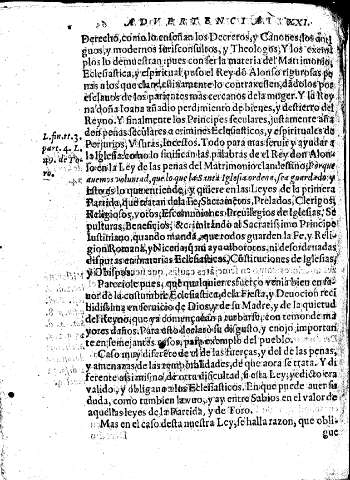 ADVERTENCIA XXI.
Derecho, como lo enseñan los Decretos, y Canones, los anti
guos, y modernos Iurisconsultos, y Theologos, Y los exem
plos lo demuestran, pues con ser la materia del Matrimonio,
Eclesiastica, y espiritual, puso el Rey dõ Alonso rigurosas pe
nas a los que clandestinamente lo contraxessen, dãdolos por
esclauos de los parientes mas cercanos de la muger. Y la Rey
na doña Ioana añadio perdimiento de bienes, y destierro del
Reyno. Y finalmente los Principes seculares, justamente aña
den penas seculares a crimines Eclesiasticos, y espirituales de
Perjurios, Vsuras, Incestos. Todo para mas seruir y ayudar a
L. fin. tit. 3.
part. 4. L.
49. de To-
ro.
la Iglesia como lo sinifican las palabras de el Rey don Alon
so en la Ley de las penas del Matrimonio clandestino, Porque
auemos voluntad, que lo que la Santa Iglesia ordena, sea guardado, y
esto es lo que entiende, y quiere en las Leyes de la primera
Partida, que tratan de la Fe, Sacramentos, Prelados, Clerigos,
Religiosos, votos, Escomuniones, Preuilegios de Iglesias, Se
pulturas, Beneficios, &c. imitando al Sacratissimo Principe
Iustiniano, quando manda, que todos guarden la Fe, y Reli-
gion Romana, y Nicena, sin que aya alborotos, ni desordenadas
disputas en materias Eclesiasticas, Cõstituciones de Iglesias,
y Obispos.
Pareciole pues, que qualquier esfuerço venia bien en fa-
uor de la costumbre Eclesiastica, de la Fiesta, y Deuocion reci
bidissima en seruicio de Dios, y de su Madre, y de la quietud
del Reyno, que ya començaua a turbarse, con temor de ma
yores daños. Para esto declarò su disgusto, y enojo important
te en semejantes casos, para exemplo del pueblo.
Caso muy diferẽte es el de las fuerças, y del de las penas,
y amenazas de las temporalidades, de que aora se trata. Y di
ferente assimismo, de otra dificultad, si esta Ley, y edicto era
valido, y obligaua a los Eclesiasticos. En que puede auer su
duda, como tambien la vuo, y ay entre Sabios en el valor de
aquellas leyes de la Partida, y de Toro.
Mas en el caso desta nuestra Ley, se halla razon, que obli
gue